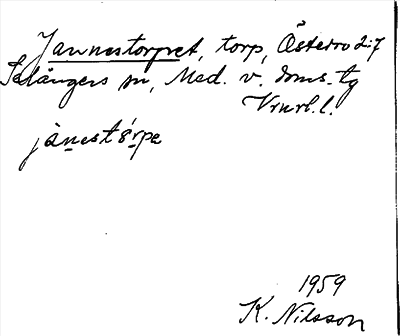 Jannestorpet, torp, Östero 2:7
Selångers sn, Med. v. doms. tg
Vnrl. l.
jànestórpe
1959
K. Nilsson